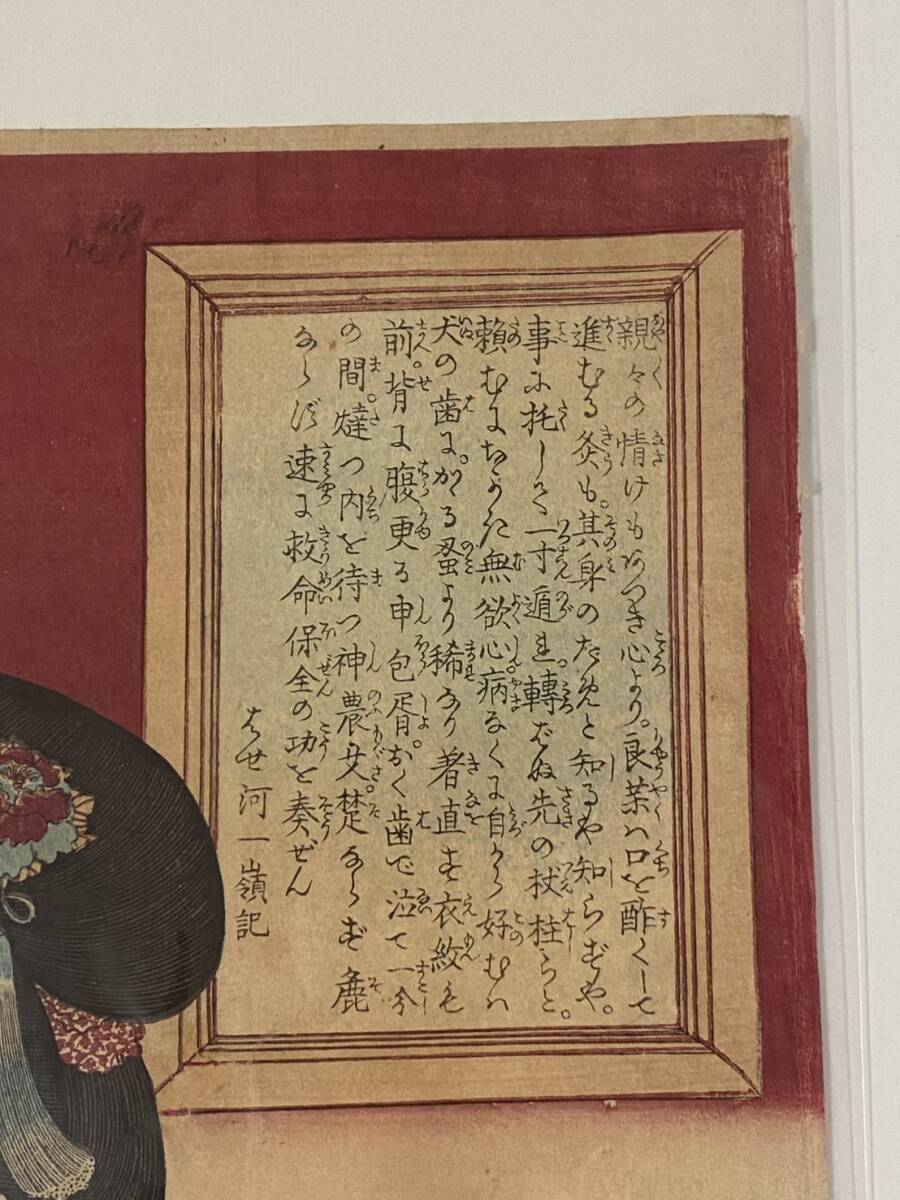 親々の情けもあつき心より。良薬ハ口を酢くして
進むる灸も。其身のためと知るや知らずや。
事に托して一寸遁れ。轉ばぬ先の杖柱らと。
頼むにちかた無欲心。病なくに自から好むハ
犬の歯に。かゝる蚤より稀なり着直す衣紋も
前。背に腹更る申包胥。おく歯で泣て一今
の間。燵つ内を待つ神農艾。楚ならず麁
ならず速に救命保全の功を奏ぜん
はせ河一嶺記